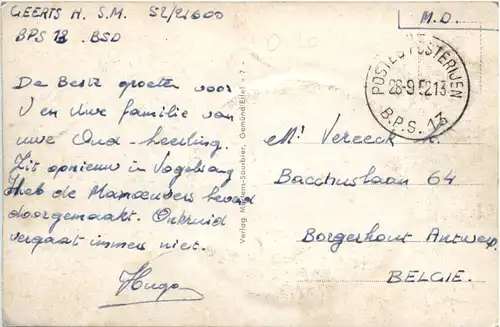 GEERTS H. S.M. 52/21600
BPS 13 .BSD
M.D.
POSTES POSTERIJEN
28-9 52 13
B.P.S. 13
De Beste groeten voor
U en Uwe familie van
uwe Oud-leerling.
Zit opnieuw in Vogelsang
Heb de Manoeuvers
doorgemaakt. Onkruid
vergaat immers niet.
Hugo
Verlag Mertens-Saurbier, Gemünd/Eifel - 7 -
Mr Vereeck
Bacchuslaan 64
Borgerhout Antwerp.
BELGIE.